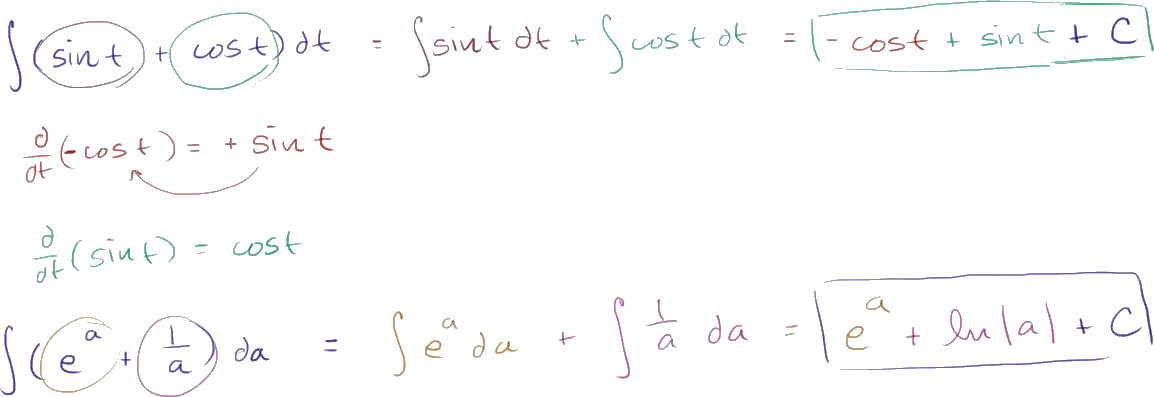 ∫(sin t + cos t) dt = ∫sin t dt + ∫cos t dt = -cos t + sin t + C
d/dt(-cos t) = + sin t
d/dt(sin t) = cos t
∫(e^a + 1/a) da = ∫e^a da + ∫1/a da = e^a + ln|a| + C